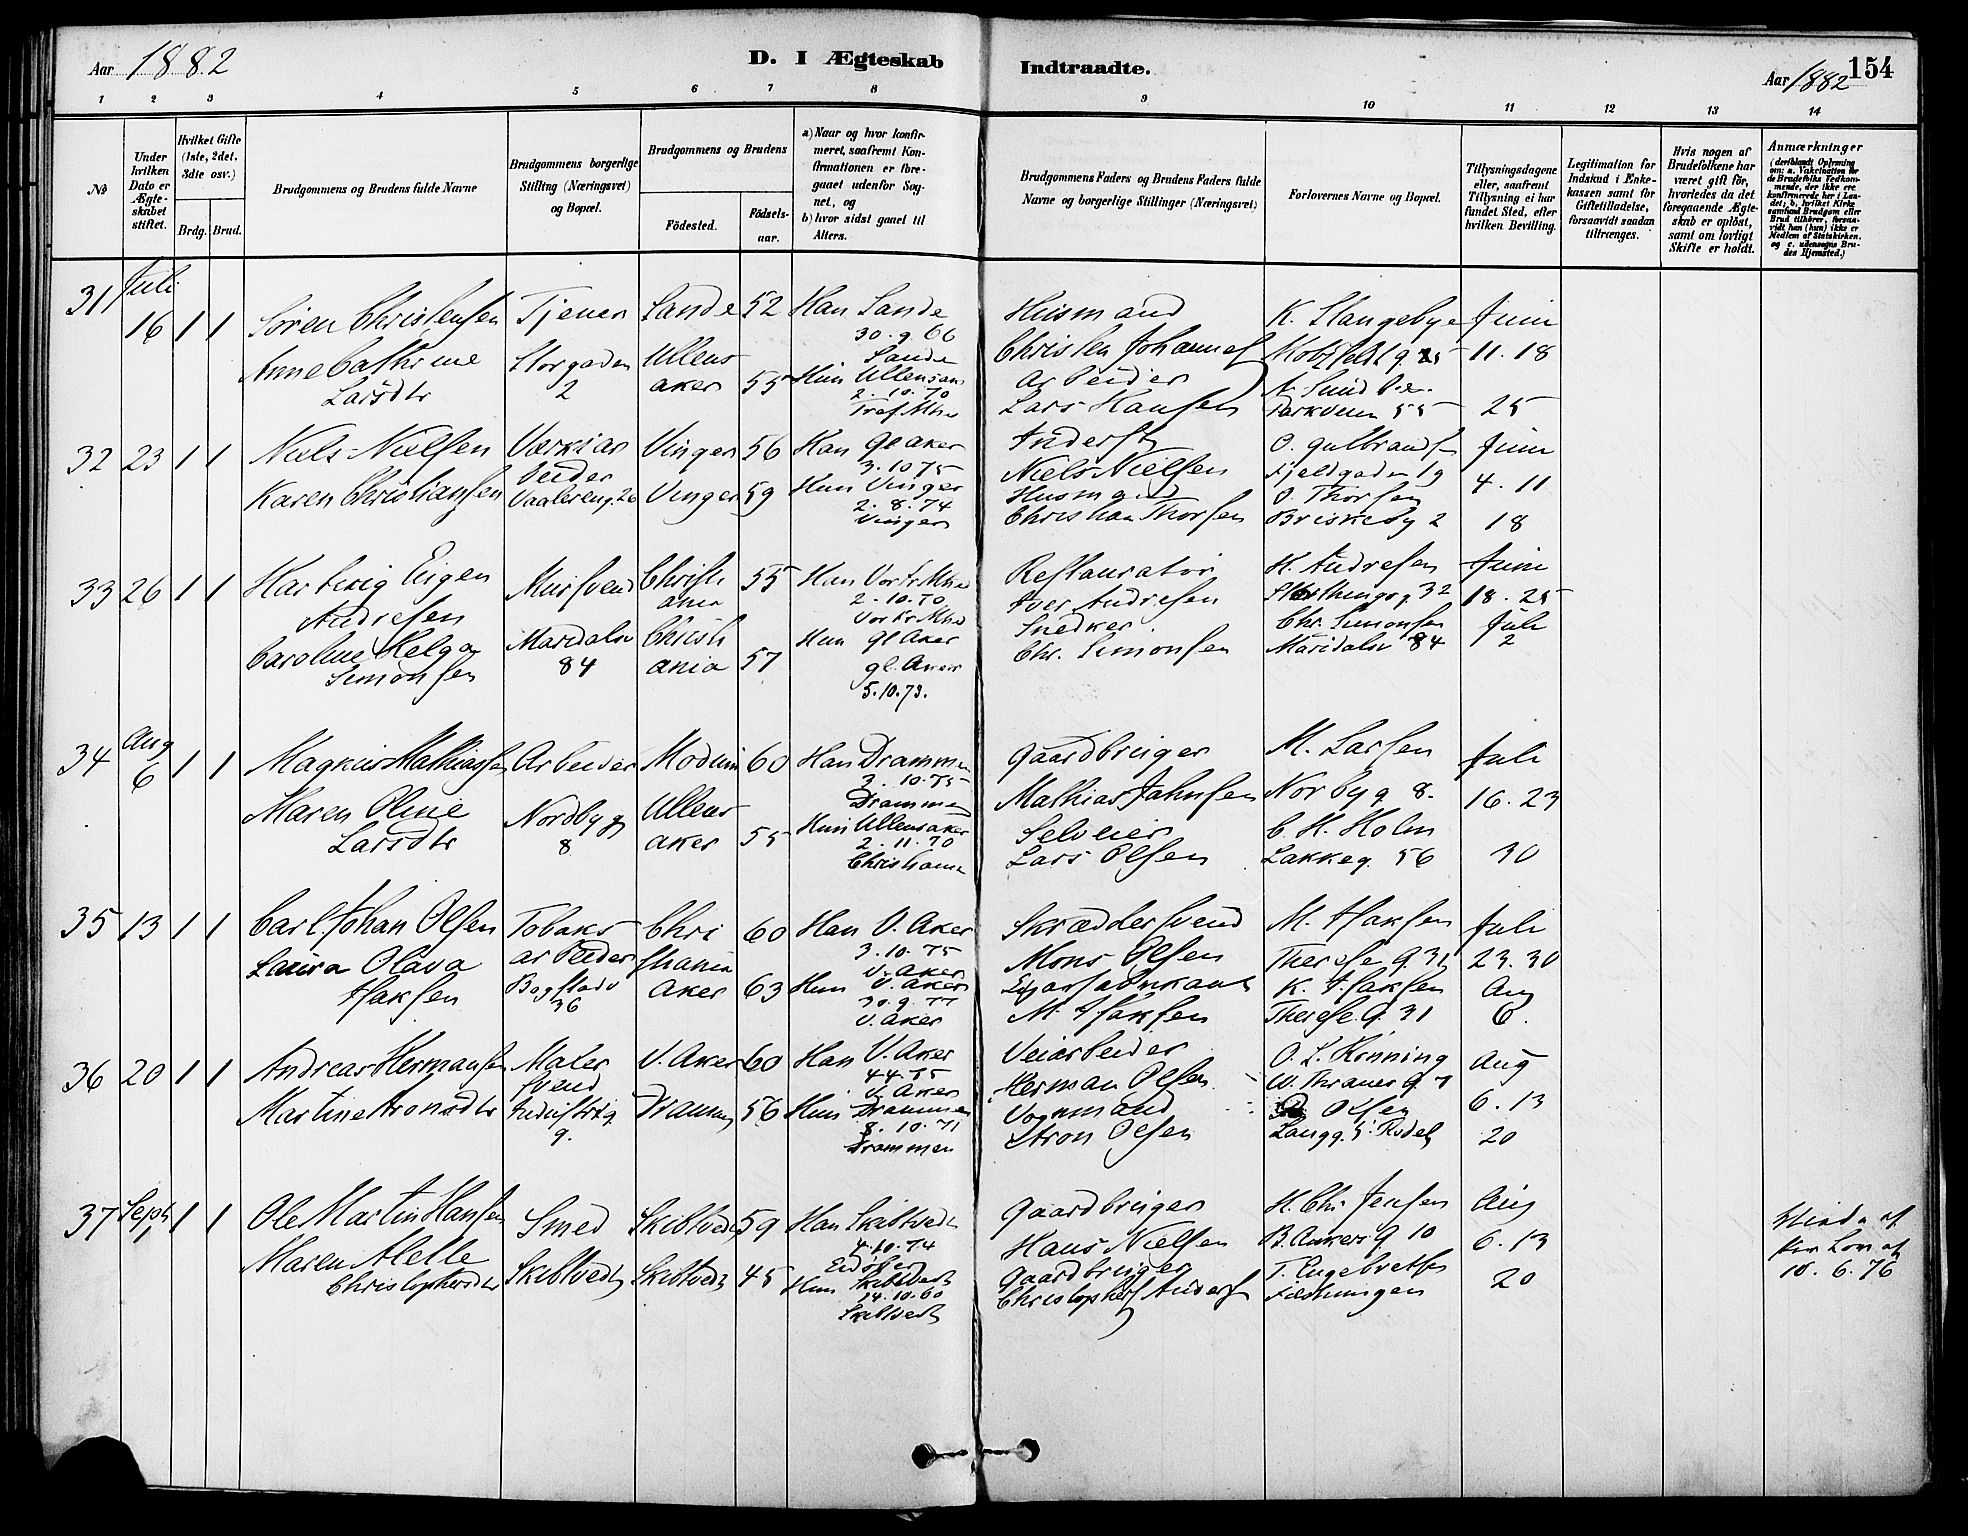 Aar 1882
D. I Ægteskab
Indtraadte.
Aar 1882
154
1 2 3 4 5 6 7 8 9 10 11 12 13 14
No
Under hvilken Dato er Ægteskabet stiftet.
Hvilket Gifte (1ste, 2det, 3die osv.)
Brdg. Brud.
Brudgommens og Brudens fulde Navne
Brudgommens borgerlige Stilling (Næringsvei) og Bopæl.
Brudgommens og Brudens
Födested.
Födsels-aar.
a) Naar og hvor konfirmeret, saafremt Konfirmationen er foregaaet udenfor Sognet, og
b) hvor sidst gaaet til Alters.
Brudgommens Faders og Brudens Faders fulde Navne og borgerlige Stillinger (Næringsvei)
Forlovernes Navne og Bopæl.
Tillysningsdagene eller, saafremt Tillysning ei har fundet Sted, efter hvilken Bevilling.
Legitimation for Indskud i Enkekassen samt for Giftetilladelse, forsaavidt saadan tiltrænges.
Hvis nogen af Brudefolkene har været gift för, hvorledes da det foregaaende Ægteskab er oplöst, samt om lovligt Skifte er holdt.
Anmærkninger
(deriblandt Oplysning om: a. Vakcination for de Brudefolks Vedkommende, der ikke ere konfirmerede her i Landet; b. hvilket Kirkesamfund Brudgom eller Brud tilhörer, forsaavidt han (hun) ikke er Medlem af Statskirken. og c. udensogns Brudes Hjemsted.)
31 Juli 16 1 1
Sören Christensen
Anne Cathrine
Larsdtr
Tjener
Storgaden
2
Sande 52
Ullens
aker 55
Han Sande
30.9.66
Sande
Hun Ullensaker
2.10.70
Tref. Mhd
Husmand
Christen Johannes
Arbeider
Lars Hansen
K. Slangebye
Motzfeldt g 25
N. Sundbye
Parkveien 55
Juni
11. 18
25
32 23 1 1
Niels Nielsen
Karen Christiansen
Værksar
beider
Vaalereng. 26
Vinger 56
Vinger 59
Han Gl Aker
3.10 75
Hun Vinger
2.8.74
Vinger
Inderst
Niels Nielsen
Husmand
Christian Thorsen
O. Gulbrandsen
Fjeldgaden 19
O. Thorsen
Briskeby 2
Juni
4. 11
18
33 26 1 1
Hartvig Eugen
Andresen
Caroline Helga
Simonsen
Mursvend
Maridalsv
84
Christi
ania 55
Christi
ania 57
Han Vor Fr Mhd
2.10.70
Vor Fr Mhd
Hun gl Aker
gl. Aker
5.10.73.
Restauratör
Iver Andresen
Snedker.
Chr. Simonsen
H. Andresen
Storthingsg. 32
Chr. Simonsen
Maridalsv 84
Juni
18. 25
Juli
2
34 Aug 6 1 1
Magnus Mathiassen
Maren Oline
Larsdtr
Arbeider
Nordbyg
8
Modum 60
Ullens
aker 55
Han Drammen
3.10.75
Drammen
Hun Ullensaker
2.11.70
Christiania
Gaardbruger
Mathias Jahnsen
Selveier
Lars Olsen
M. Larsen
Norbyg 8.
C. H. Holm
Lakkeg. 56
Juli
16. 23
30
35 13 1 1
Carl Johan Olsen
Laura Olava
Isaksen
Tobaks
arbeider
Bogstadv
36
Chri
stiania 60
Aker 63
Han V. Aker
3.10.75
V. Aker
Hun V. Aker
30.9.77
V. Aker
Skræddersvend
Mons Olsen
Cigarfabrikant
M. Isaksen
M. Isaksen
Therese g. 31
K. Isaksen
Therese. g. 31
Juli
23. 30
Aug
6.
36 20 1 1
Andreas Hermansen
Martine Aronsdtr
Maler
svend
Industrig
9.
V. Aker 60
Drammen 56
Han V. Aker
4.4.75
V. Aker
Hun Drammen
8.10.71
Drammen
Veiarbeider
Herman Olsen
Vognmand
Aron Olsen
O. L. Rönning
W. Thranes g. 7
Olsen
Langg. 5.
Aug
6. 13
20
37 Septr 1 1
Ole Martin Hansen
Maren Alette
Christophersdtr
Smed
Skibtvedt
Skibtvedt 59
Skibtvedt 45
Han Skibtvedt
4.10.74
Hun Skibtvedt
14.10.60
Skibtvedt
Gaardbruger
Hans Nielsen
Gaardbruger
Christopher Anders
H. Chr. Jensen
B. Ankers g. 10
T. Engebretsen
Fæstningen
Aug
6. 13
20
af
Lov af
10. 6. 76